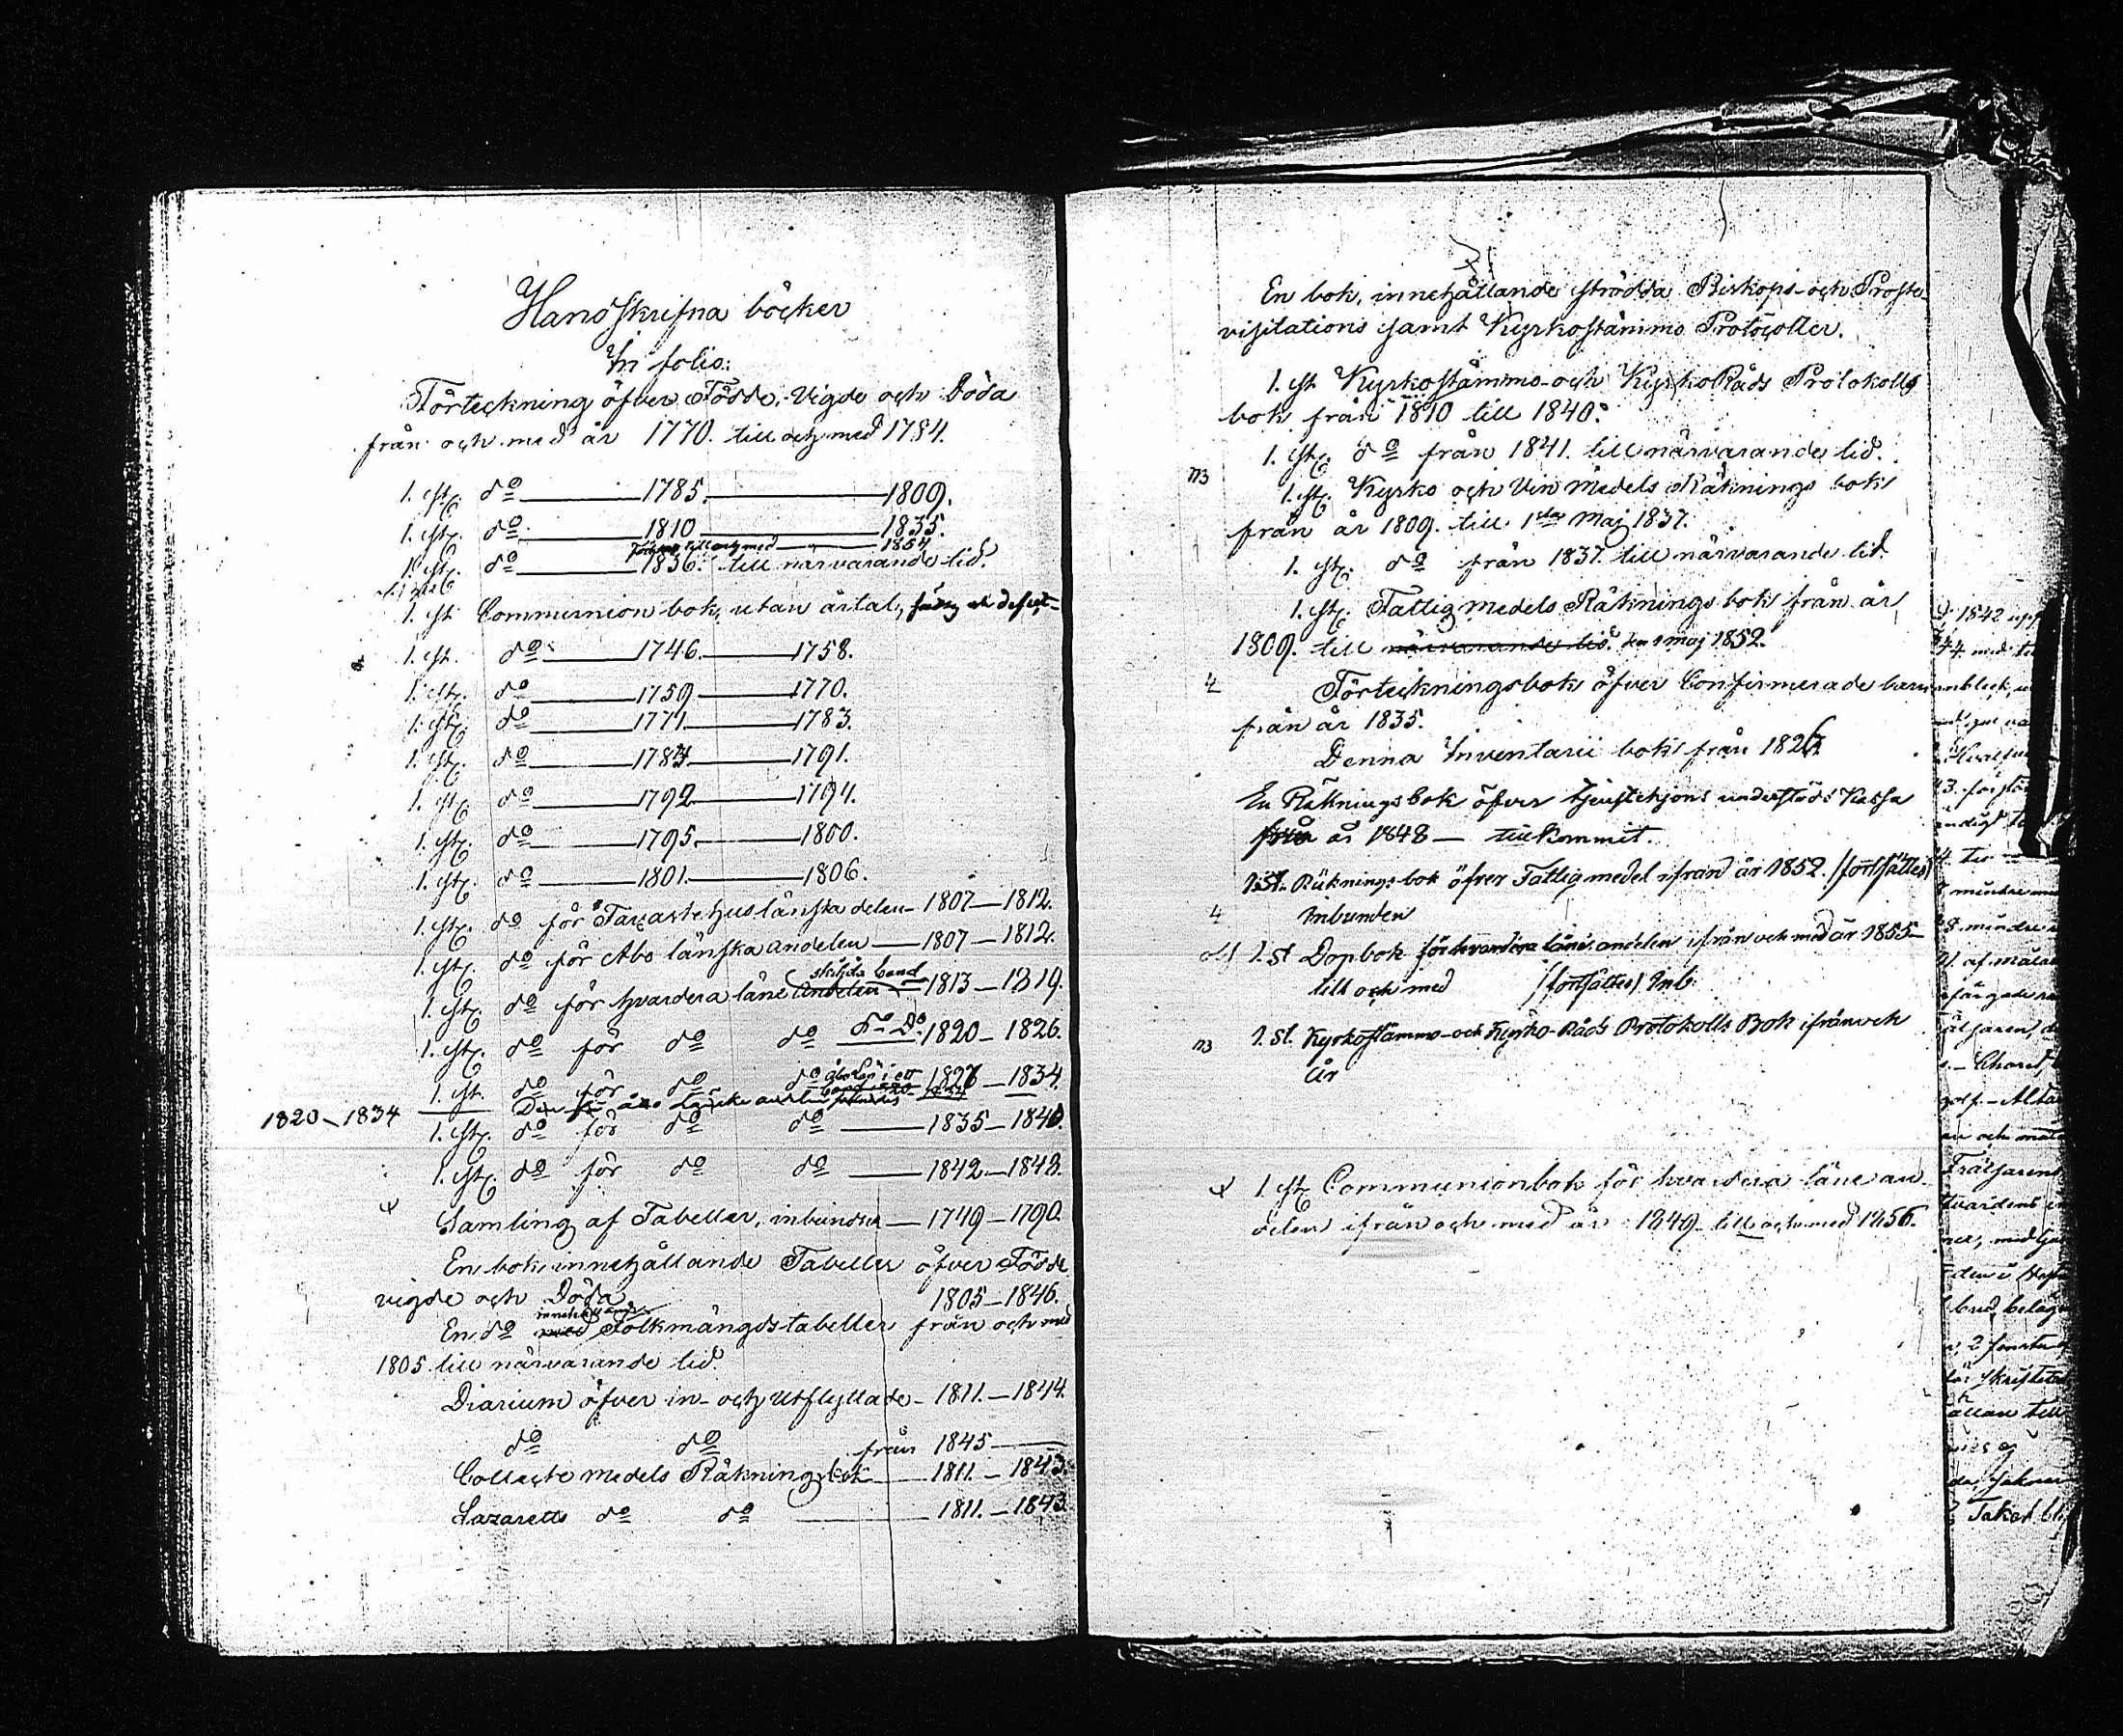 Handskrifna böcker
In folio:
Förteckning öfver Födde, Vigde och Döda
från och med år 1770. till och med 1784.
1. st. do 1785. 1809.
1. st. do 1810 1835.
till och med 1854
1. st. do 1836. till närvarande tid.
1. st Communion bok, utan årtal,
1. st. do 1746. 1758.
1. st. do 1759 1770.
1. st. do 1771. 1783.
1. st. do 1784 1791.
1. st. do 1792 1794.
1. st. do 1795. 1800.
1. st. do 1801. 1806.
1. st. do för Tavastehus länska delen 1807 — 1812.
1. st. do för Åbo länska andelen 1807 — 1812.
skilda band
1. st. do för hvardera läne andelen 1813 — 1819.
1. st. do för do do do Do 1820 — 1826.
i ett
1. st. do för do do 1827 — 1834.
1820 — 1834
1. st. do för do do 1835 — 1840.
1. st. do för do do 1842 — 1848.
Samling af Tabeller, inbundne — 1749 — 1790.
En bok innehållande Tabeller öfver Födde
vigde och Döda 1805 — 1846.
innehållande
En do med Folkmängds tabeller från och med
1805. till närvarande tid.
Diarium öfver in- och Utflyttade - 1811. — 1844.
do do från 1845
Collecte medels Räkningsbok 1811. — 1843.
Lazaretts do do 1811. — 1843.
En bok, innehållande strödda Biskops- och Proste-
visitations samt Kyrkostämmo Protocoller.
1. st Kyrkostämmo- och KyrkoRåds Protokolls
bok från 1810 till 1840.
1. st. do från 1841. till närvarande tid.
1. st. Kyrko och Vin Medels Räknings bok
från år 1809. till 1sta Maj 1837.
1. st. do från 1837. till närvarande tid.
1. st. Fattigmedels Räknings bok från år
1809. till närvarande tid. den 1 maj 1852.
4 Förteckningsbok öfver Confirmerade barn
från år 1835.
Denna Inventarii bok från 1826
En Räknings bok öfver tjenstehjons understöds Kassa
från år 1848 — tillkommit.
1. St. Räknings bok öfver Fattigmedel ifrån år 1852. /fortsättes/
4 Inbunden
1. St Dopbok för hvardera läns andelen ifrån och med år 1855 —
till och med /fortsättes/ Inb.
1. St. Kyrkostämmo- och Kyrko-Råds Protokolls Bok ifrån och
År
1 st. Communionbok för hvardera läne an
delen ifrån och med år 1849. till och med 1856.
1842
med
mindre
8. mindre
af
Choret,
Alta
Frälsaren
belägn
2 fenster
Taket